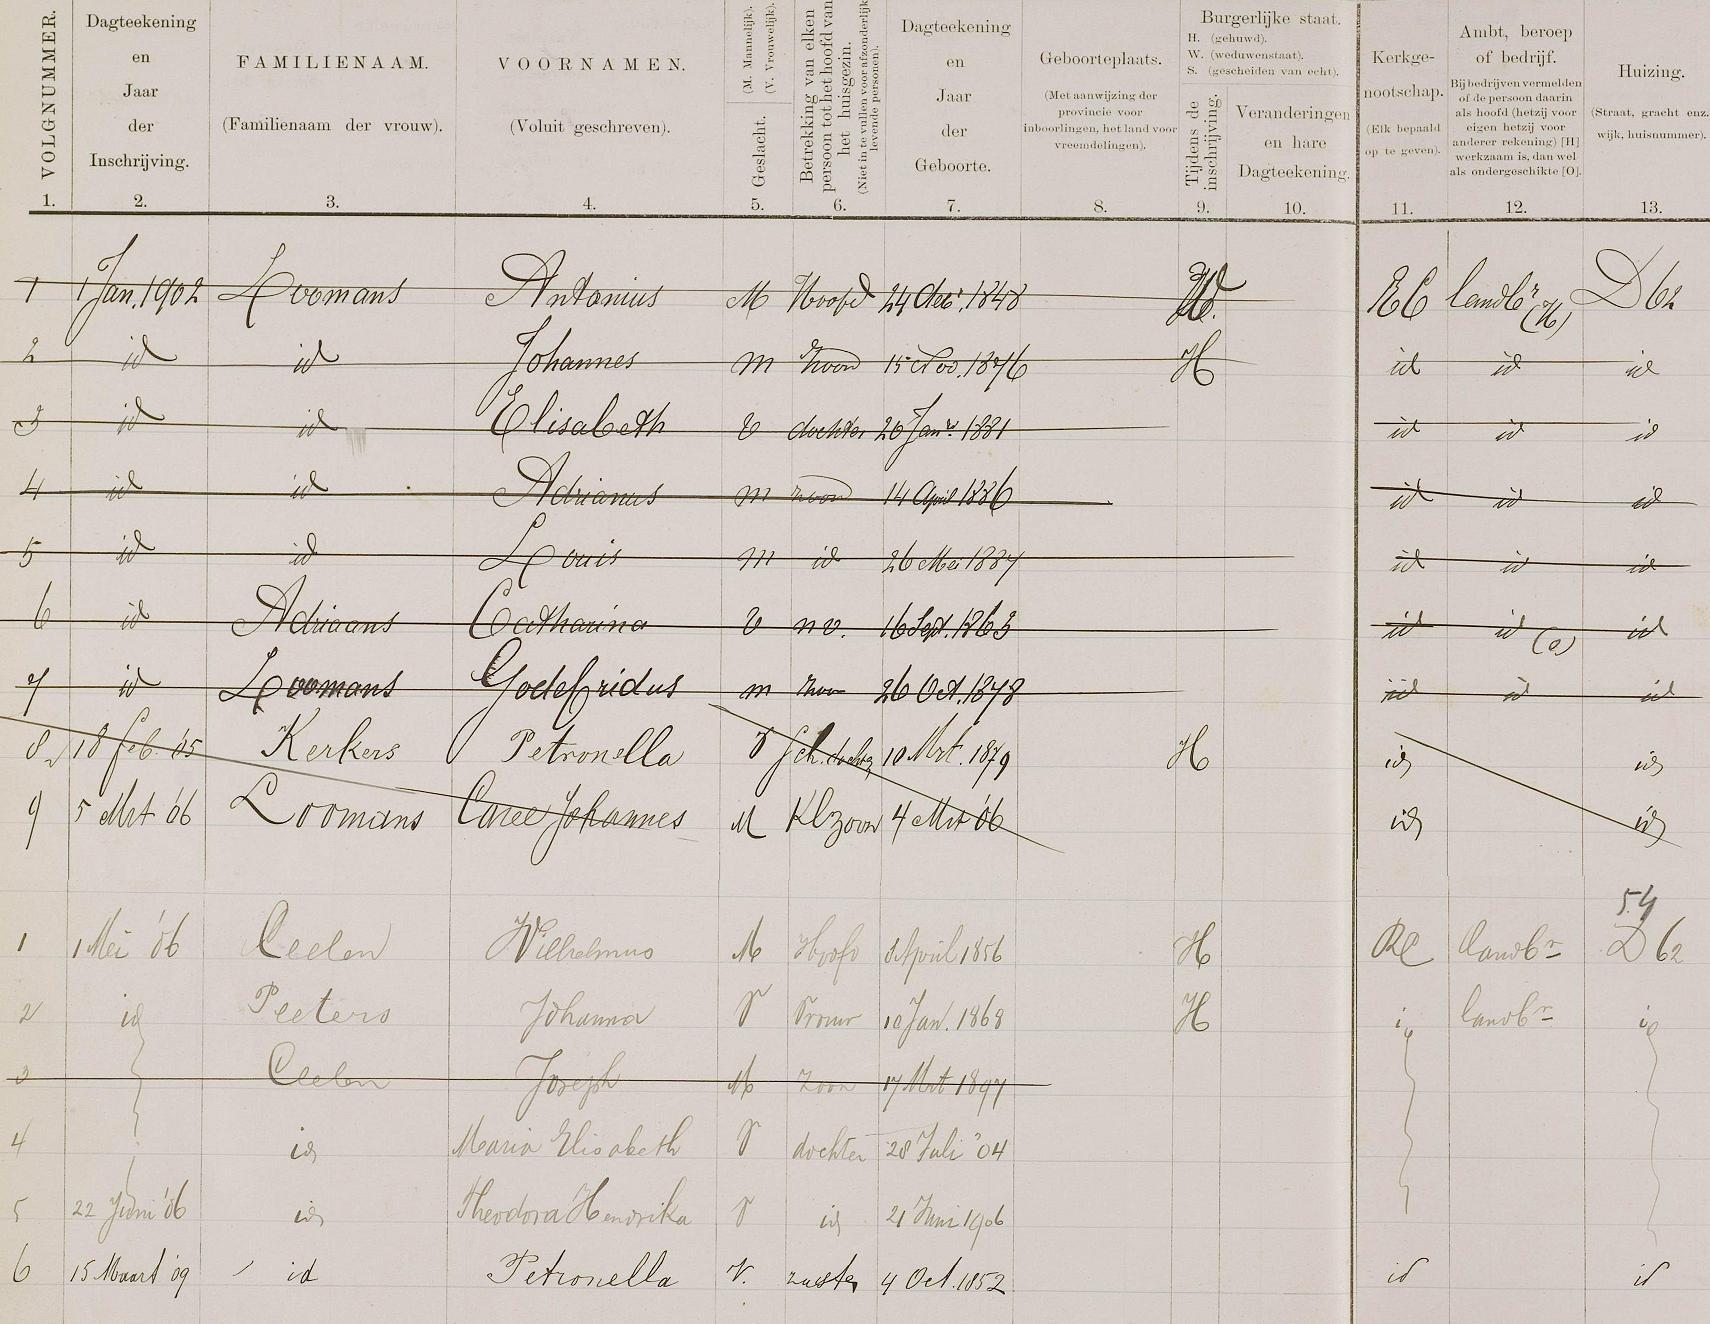 VOLGNUMMER. Dagteekening en Jaar der Inschrijving. FAMILIENAAM. (Familienaam der vrouw). VOORNAMEN. (Voluit geschreven). Geslacht. (M. Mannelijk). (V. Vrouwelijk). Betrekking van elken persoon tot het hoofd van het huisgezin. (Niet in te vullen voor afzonderlijk levende personen). Dagteekening en Jaar der Geboorte. Geboorteplaats. (Met aanwijzing der provincie voor inboorlingen, het land voor vreemdelingen). Burgerlijke staat. H. (gehuwd). W. (weduwenstaat). S. (gescheiden van echt). Tijdens de inschrijving. Veranderingen en hare Dagteekening. Kerkgenootschap. (Elk bepaald op te geven). Ambt, beroep of bedrijf. Bij bedrijven vermelden of de persoon daarin als hoofd (hetzij voor eigen hetzij voor anderer rekening) [H] werkzaam is, dan wel als ondergeschikte [O]. Huizing. (Straat, gracht enz. wijk, huisnummer).
1. 2. 3. 4. 5. 6. 7. 8. 9. 10. 11. 12. 13.
1 1 Jan. 1902 Loomans Antonius M Hoofd 24 Decr. 1848 W. RC landbr (H) D 62
2 id id Johannes m zoon 15 Nov. 1876 H id id id
3 id id Elisabeth v dochter 20 Janr. 1881 id id id
4 id id Adrianus m zoon 14 April 1886 id id id
5 id id Louis m id 26 Mei 1887 id id id
6 id Adriaans Catharina v nv. 16 Sept. 1863 id id (o) id
7 id Loomans Godefridus m zoon 26 Oct. 1878 id id id
8 18 feb. '05 Kerkers Petronella V sch. dochter 10 Mrt. 1879 H id id
9 5 Mrt '06 Loomans Carel Johannes M Kl zoon 4 Mrt '06 id id
54
1 1 Mei '06 Ceelen Wilhelmus M Hoofd 8 April 1856 H RC landbr D 62
2 id Peeters Johanna V Vrouw 10 Jan. 1868 H id landbr id
3 Ceelen Joseph M zoon 17 Mrt 1897
4 id Maria Elisabeth V dochter 28 Juli '04
5 22 Juni '06 id Theodora Hendrika V id 21 Juni 1906
6 15 Maart '09 id Petronella V. zuster 4 Oct. 1852 id id